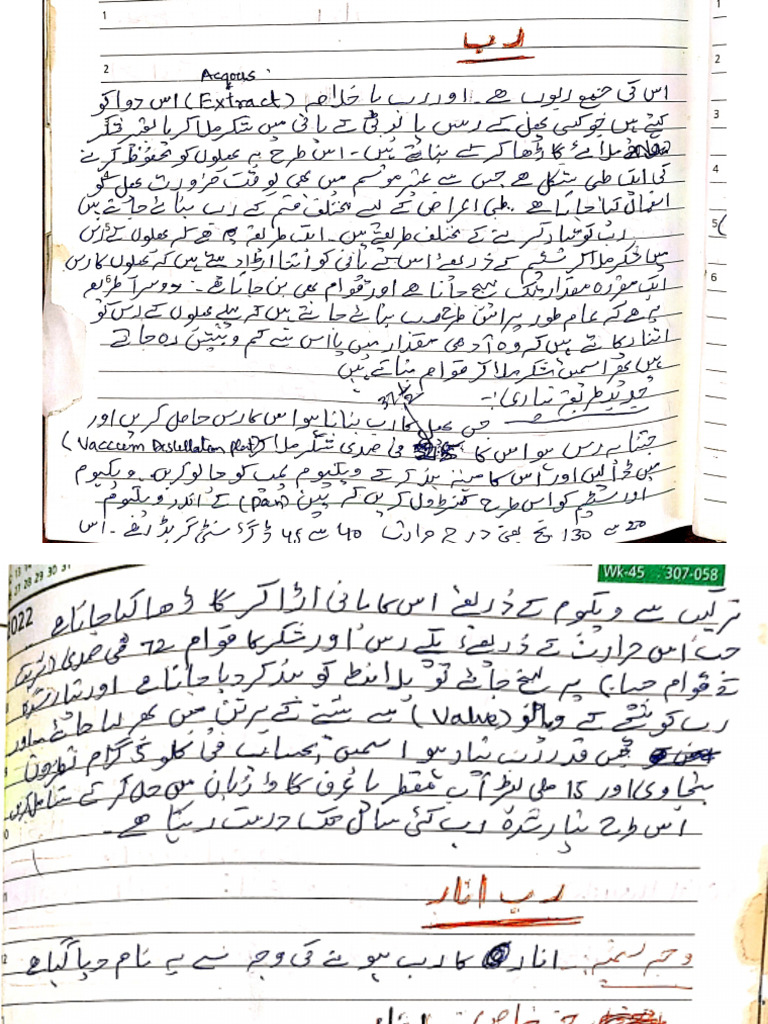 رب
Acqous
اس کی جمع ربوب ہے۔ اور رب یا خلاصہ (Extract) اس دوا کو
کہتے ہیں جو کسی پھل کے رس یا بوٹی کے پانی میں شکر ملا کر یا بغیر شکر
ملائے گاڑھا کر کے بناتے ہیں۔ اس طرح یہ پھلوں کو محفوظ کرنے
کی ایک طبی شکل ہے جس سے غیر موسم میں بھی بوقت ضرورت پھل کو
استعمال کیا جاتا ہے۔ طبی اغراض کے لیے مختلف قسم کے رب بنائے جاتے ہیں
رب کو تیار کرنے کے مختلف طریقے ہیں۔ ایک طریقہ یہ ہے کہ پھلوں کے رس
میں شکر ملا کر سٹیم کے ذریعے اس کے پانی کو اتنا اڑا دیتے ہیں کہ پھلوں کا رس
ایک مقررہ مقدار تک پہنچ جاتا ہے اور قوام بھی بن جاتا ہے۔ دوسرا طریقہ
یہ ہے کہ عام طور پر اس طرح رب بنائے جاتے ہیں کہ پہلے پھلوں کے رس کو
اتنا پکاتے ہیں کہ وہ آدھی مقدار میں یا اس سے کم و بیش رہ جاتے
ہیں پھر اسمیں شکر ملا کر قوام بناتے ہیں
جدید طریقہ تیاری:-
جس پھل کا رب بنانا ہو اس کا رس حاصل کریں اور
جتنا یہ رس ہو اس کا فی صدی شکر ملا کر (Vaccum Distillation Plot)
میں ڈالیں اور اس کا منہ بند کر کے ویکیوم پمپ کو چالو کریں۔ ویکیوم
اور سٹیم کو اس طرح کنٹرول کریں کہ پین (Pan) کے اندر ویکیوم
20 سے 130 انچ یعنی درجہ حرارت 40 سے 45 ڈگری سنٹی گریڈ رہے۔ اس
Wk-45 307-058
2022
ترکیب سے ویکیوم کے ذریعے اس کا پانی اڑا کر گاڑھا کیا جاتا ہے
جب اس حرارت کے ذریعے پکے رس اور شکر کا قوام 72 فی صدی (شربت
کے قوام جیسا) پر پہنچ جائے تو پلانٹ کو بند کر دیا جاتا ہے اور تیار شدہ
رب کو نیچے کے والو (Value) سے شیشے کے برتن میں بھر لیا جائے اور
جس قدر رب تیار ہو اسمیں بحساب فی کلو گرام نطرون
بنجاوی اور 15 ملی لیٹر آب مقطر یا عرق گاؤ زبان میں حل کر کے شامل کریں
اس طرح تیار شدہ رب کئی سال تک درست رہتا ہے۔
رب انار
وجہ تسمیہ: انار کا رب ہونے کی وجہ سے یہ نام دیا گیا ہے